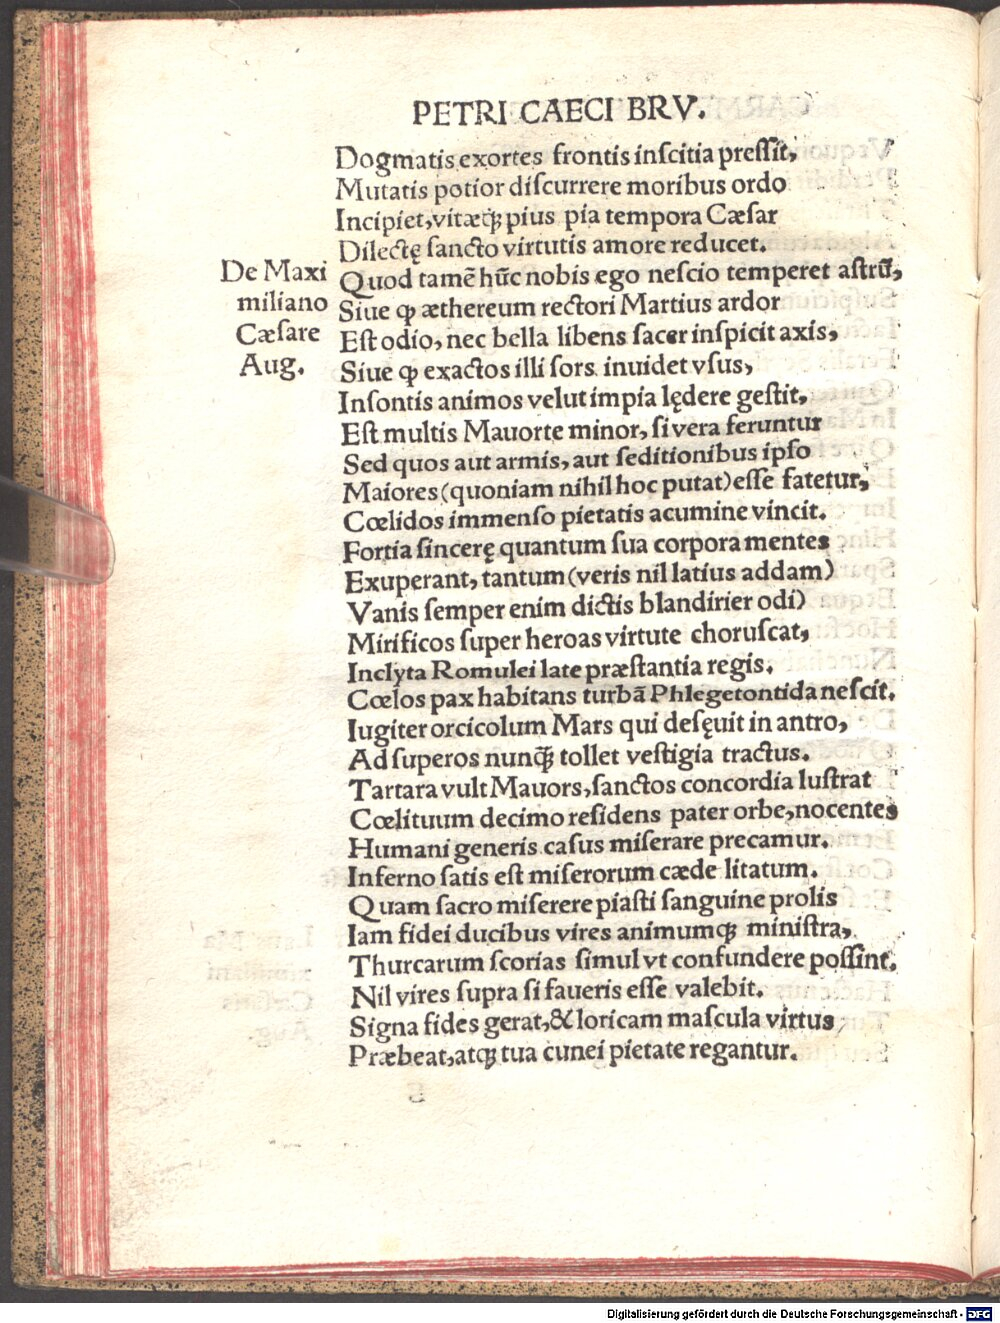 PETRI CAECI BRV.
Dogmatis exortes frontis inſcitia preſſit,
Mutatis potior diſcurrere moribus ordo
Incipiet, vitæꝗ pius pia tempora Cæſar
Dilectę ſancto virtutis amore reducet.
De Maxi
miliano
Cæſare
Aug.
Quod tamē hūc nobis ego neſcio temperet aſtrū,
Siue ꝙ æthereum rectori Martius ardor
Eſt odio, nec bella libens ſacer inſpicit axis,
Siue ꝙ exactos illi ſors inuidet vſus,
Inſontis animos velut impia lędere geſtit,
Eſt multis Mauorte minor, ſi vera feruntur
Sed quos aut armis, aut ſeditionibus ipſo
Maiores (quoniam nihil hoc putat) eſſe fatetur,
Cœlidos immenſo pietatis acumine vincit.
Fortia ſincerę quantum ſua corpora mentes
Exuperant, tantum (veris nil latius addam)
Vanis ſemper enim dictis blandirier odi)
Mirificos ſuper heroas virtute choruſcat,
Inclyta Romulei late præſtantia regis.
Cœlos pax habitans turbā Phlegetontida neſcit.
Iugiter orcicolum Mars qui deſęuit in antro,
Ad ſuperos nunꝗ̃ tollet veſtigia tractus.
Tartara vult Mauors, ſanctos concordia luſtrat
Cœlituum decimo reſidens pater orbe, nocentes
Humani generis caſus miſerare precamur.
Inferno ſatis eſt miſerorum cæde litatum.
Quam ſacro miſerere piaſti ſanguine prolis
Iam fidei ducibus vires animumꝗ miniſtra,
Thurcarum ſcorias ſimul vt confundere poſſint.
Nil vires ſupra ſi faueris eſſe valebit.
Signa fides gerat, & loricam maſcula virtus
Præbeat, atꝗ tua cunei pietate regantur.
Digitalisierung gefördert durch die Deutsche Forschungsgemeinschaft - DFG